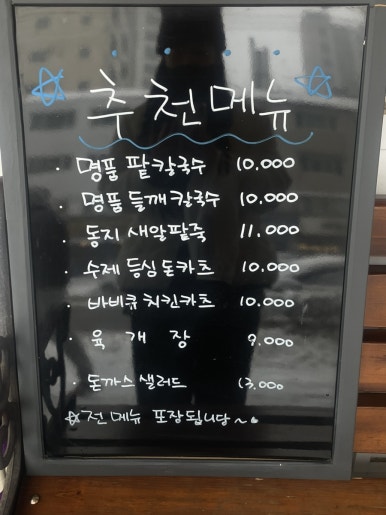 추천메뉴
· 명품 팥칼국수 10.000
· 명품 들깨칼국수 10.000
· 동지 새알팥죽 11.000
· 수제 등심돈카츠 10.000
· 바비큐치킨카츠 10.000
· 육 개 장 9.000
· 돈까스샐러드 13.000
☆전메뉴 포장됩니다~